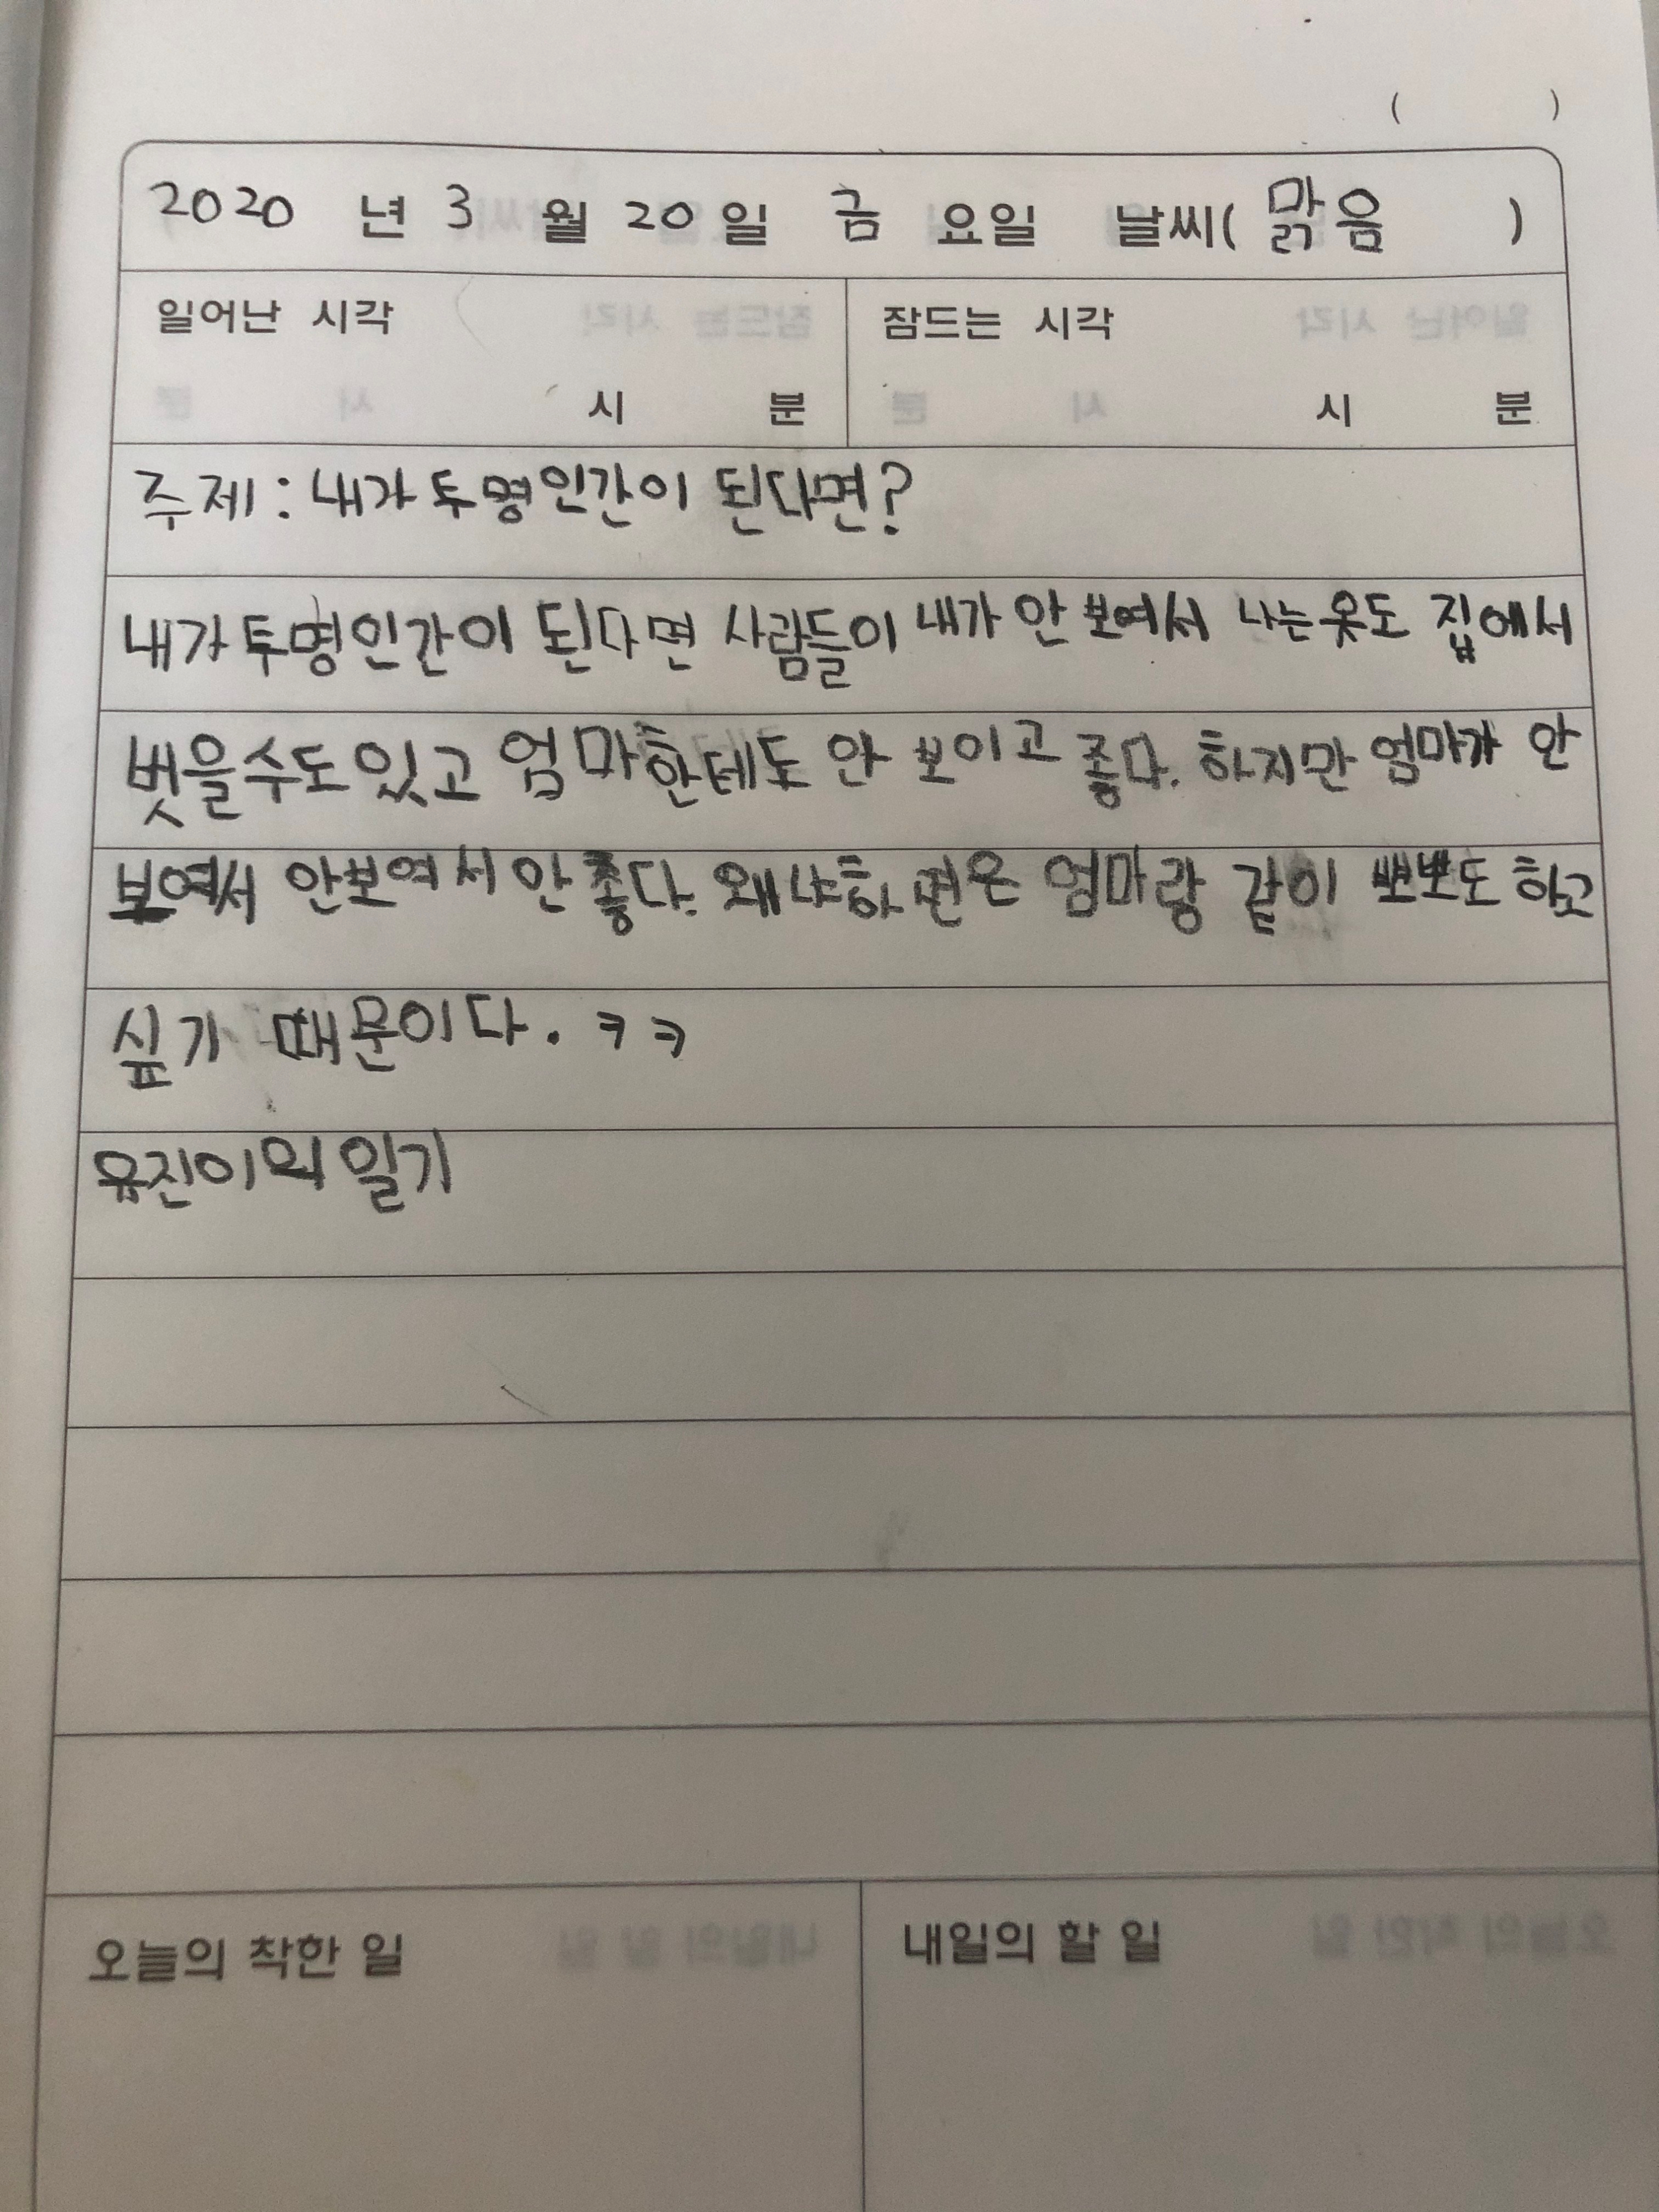 ( )
2020 년 3 월 20 일 금 요일 날씨( 맑음 )
일어난 시각 잠드는 시각
시 분 시 분
주제 : 내가 투명인간이 된다면?
내가 투명인간이 된다면 사람들이 내가 안 보여서 나는 옷도 집에서
벗을수도 있고 엄마한테도 안 보이고 좋다. 하지만 엄마가 안
보여서 안보여서 안 좋다. 왜냐하면은 엄마랑 같이 뽀뽀도 하고
싶기 때문이다. ㅋㅋ
유진이의 일기
오늘의 착한 일 내일의 할 일